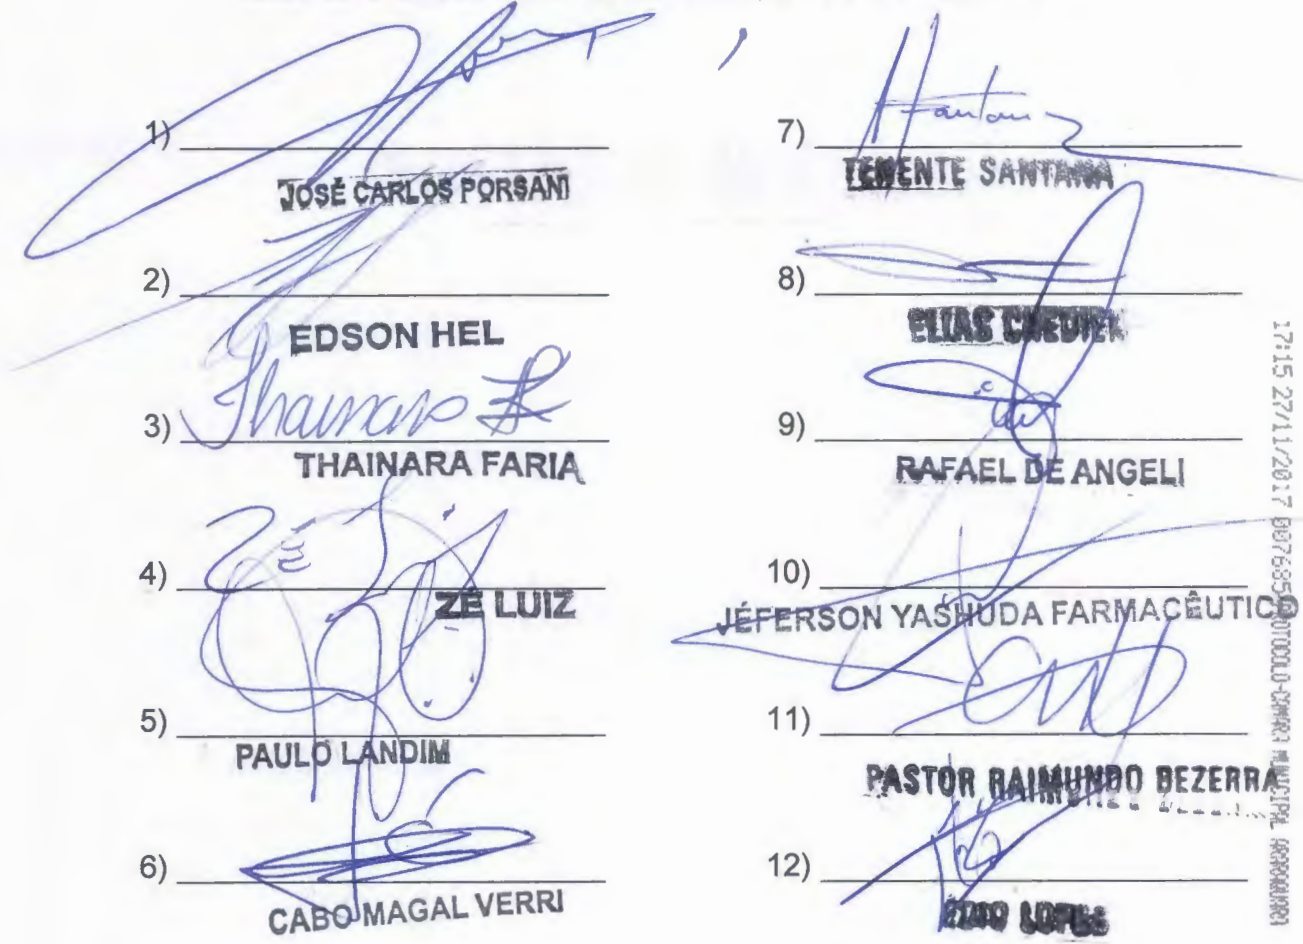 1)
JOSÉ CARLOS PORSANI
2)
EDSON HEL
Thainara
3)
THAINARA FARIA
Zé
4)
ZÉ LUIZ
5)
PAULO LANDIM
6)
CABO MAGAL VERRI
Santana
7)
TENENTE SANTANA
8)
ELIAS CHEDIEK
9)
RAFAEL DE ANGELI
10)
JÉFERSON YASHUDA FARMACÊUTICO
11)
PASTOR RAIMUNDO BEZERRA
12)
LOPES
17:15 27/11/2017 007685 PROTOCOLO-CÂMARA MUNICIPAL ARARAQUARA